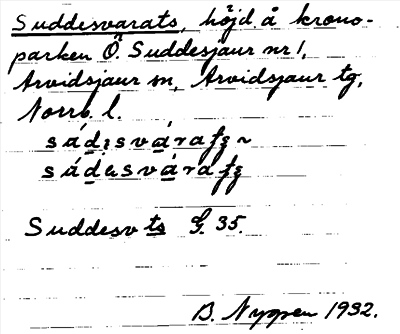 Suddesvarats, höjd å krono-
parken Ö. Suddesjaur nr 1,
Arvidsjaur sn, Arvidsjaur tg,
Norrb. l.
Suddesv ts G. 35.
B. Nygren 1932.